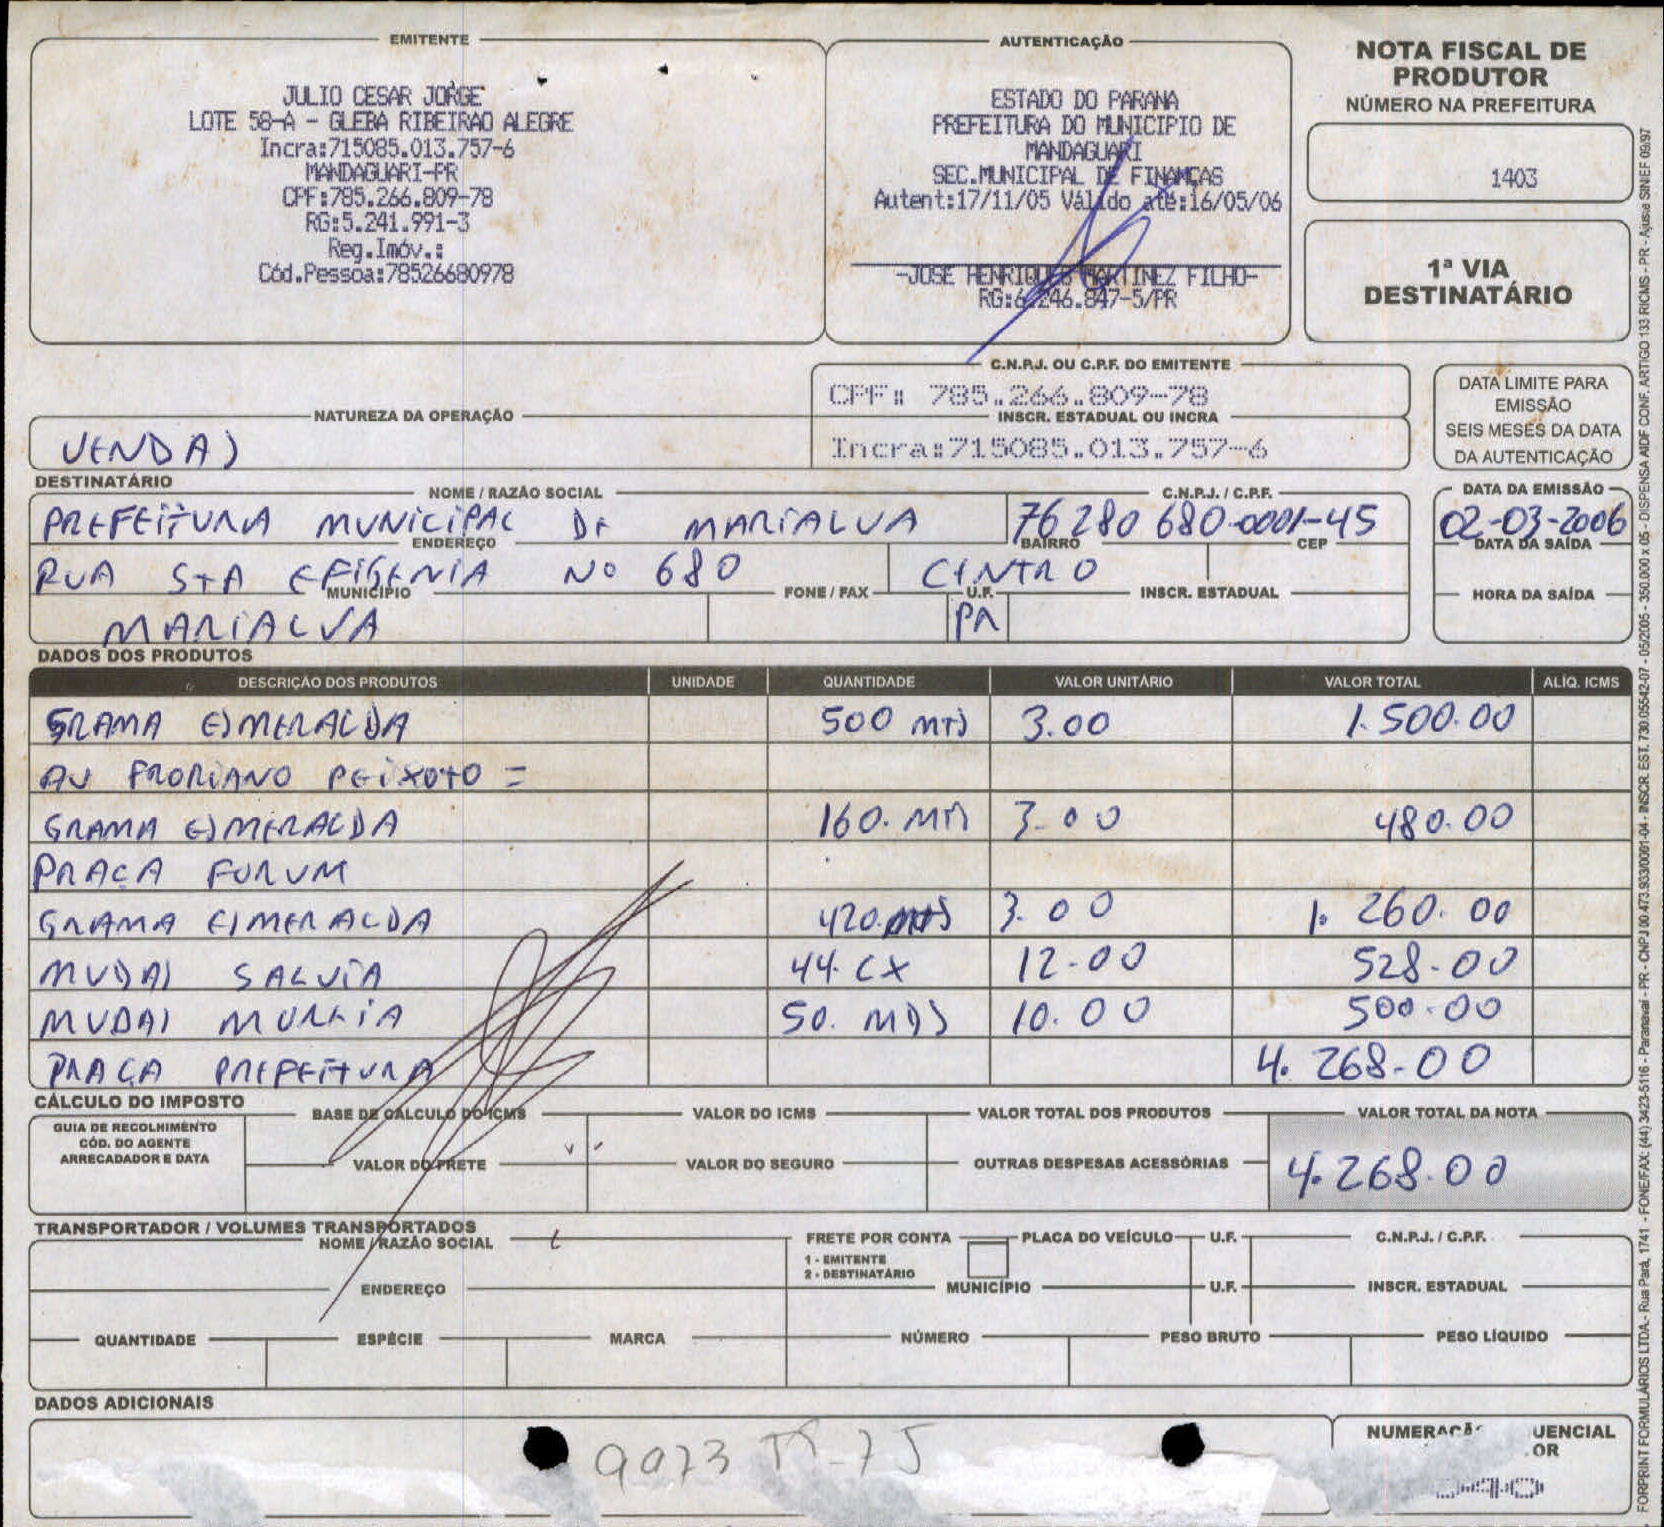 EMITENTE
JULIO CESAR JORGE
LOTE 58-A - GLEBA RIBEIRAO ALEGRE
Incra:715085.013.757-6
MANDAGUARI-PR
CPF:785.266.809-78
RG:5.241.991-3
Reg.Imóv.:
Cód.Pessoa:78526680978
AUTENTICAÇÃO
ESTADO DO PARANA
PREFEITURA DO MUNICIPIO DE
MANDAGUARI
SEC.MUNICIPAL DE FINANÇAS
Autent:17/11/05 Válido até:16/05/06
-JOSE HENRIQUE MARTINEZ FILHO-
RG:6.246.847-5/PR
NOTA FISCAL DE
PRODUTOR
NÚMERO NA PREFEITURA
1403
1ª VIA
DESTINATÁRIO
C.N.P.J. OU C.P.F. DO EMITENTE
CPF: 785.266.809-78
INSCR. ESTADUAL OU INCRA
Incra:715085.013.757-6
DATA LIMITE PARA
EMISSÃO
SEIS MESES DA DATA
DA AUTENTICAÇÃO
NATUREZA DA OPERAÇÃO
VENDAS
DESTINATÁRIO
NOME / RAZÃO SOCIAL C.N.P.J. / C.P.F. DATA DA EMISSÃO
PREFEITURA MUNICIPAL DE MARIALVA 76 280 680-0001-45 02-03-2006
ENDEREÇO BAIRRO CEP DATA DA SAÍDA
RUA STA EFIGENIA Nº 680 CENTRO
MUNICÍPIO FONE / FAX U.F. INSCR. ESTADUAL HORA DA SAÍDA
MARIALVA PR
DADOS DOS PRODUTOS
DESCRIÇÃO DOS PRODUTOS UNIDADE QUANTIDADE VALOR UNITÁRIO VALOR TOTAL ALÍQ. ICMS
GRAMA ESMERALDA 500 MTS 3.00 1.500.00
AV FRORIANO PEIXOTO =
GRAMA ESMERALDA 160. MTS 3.00 480.00
PRAÇA FORUM
GRAMA ESMERALDA 420.MTS 3.00 1.260.00
MUDAS SALVIA 44. CX 12.00 528.00
MUDAS MURKIA 50. MDS 10.00 500.00
PRAÇA PREFEITURA 4.268.00
CÁLCULO DO IMPOSTO
GUIA DE RECOLHIMENTO
CÓD. DO AGENTE
ARRECADADOR E DATA
BASE DE CÁLCULO DO ICMS VALOR DO ICMS VALOR TOTAL DOS PRODUTOS VALOR TOTAL DA NOTA
VALOR DO FRETE VALOR DO SEGURO OUTRAS DESPESAS ACESSÓRIAS
4.268.00
TRANSPORTADOR / VOLUMES TRANSPORTADOS
NOME / RAZÃO SOCIAL FRETE POR CONTA PLACA DO VEÍCULO U.F. C.N.P.J. / C.P.F.
1 - EMITENTE
2 - DESTINATÁRIO
ENDEREÇO MUNICÍPIO U.F. INSCR. ESTADUAL
QUANTIDADE ESPÉCIE MARCA NÚMERO PESO BRUTO PESO LÍQUIDO
DADOS ADICIONAIS
9973
FORPRINT FORMULÁRIOS LTDA.- Rua Pará, 1741 - FONE/FAX: (44) 3423-5116 - Paranavaí - PR - CNPJ 00.473.933/0001-04 - INSCR. EST. 730.05542-07 - 05/2005 - 350.000 x 05 - DISPENSA AIDF CONF. ARTIGO 133 RICMS - PR - Ajuste SINIEF 09/97